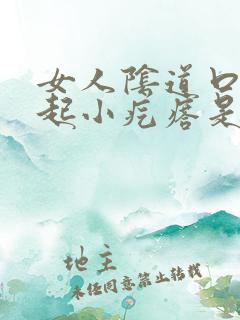 女人陰道口
起小疙瘩是
地主
未经同意禁止转载